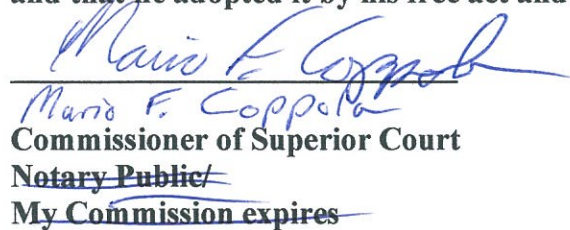 and that he adopted it by his free act and
Mario F. Coppola
Mario F. Coppola
Commissioner of Superior Court
Notary Public/
My Commission expires